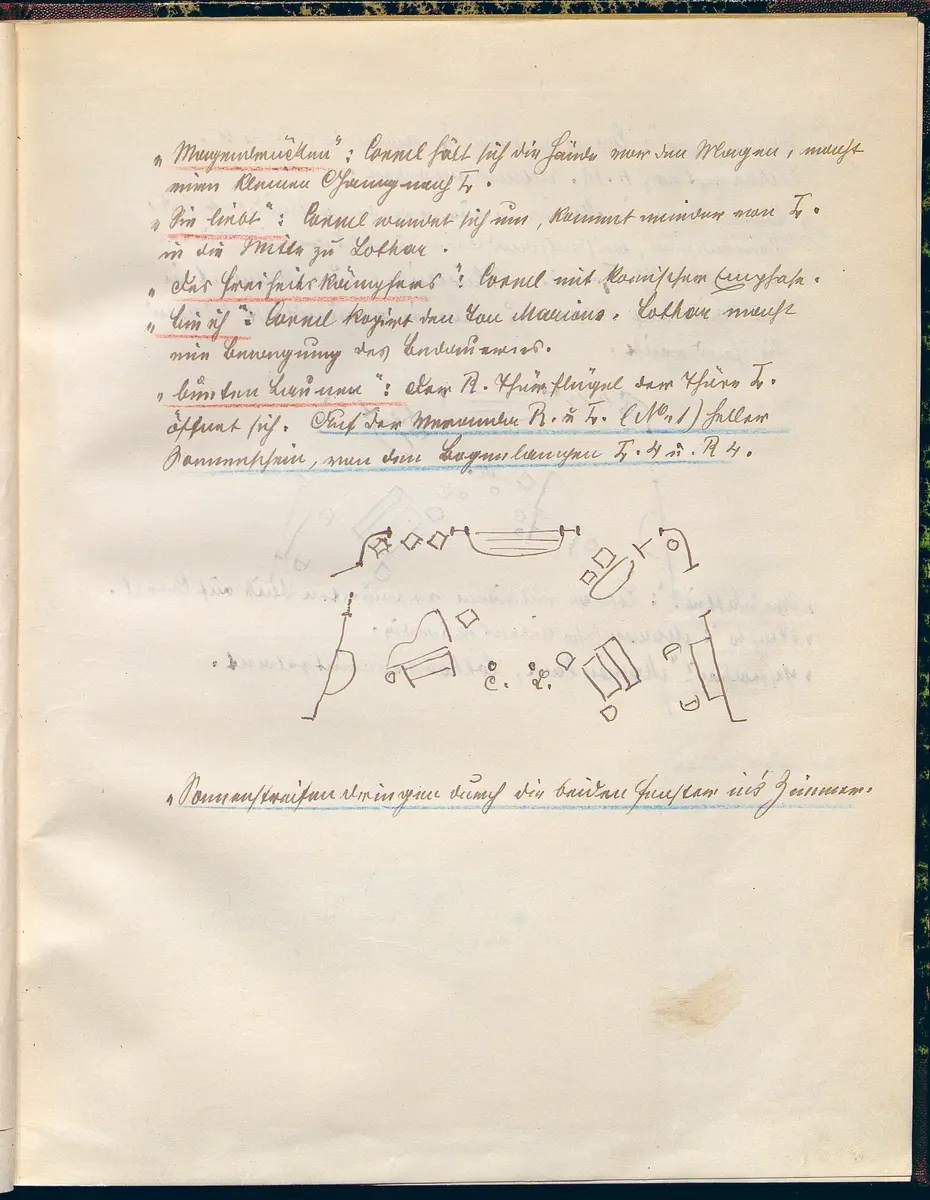 „Magendrücken“: Cornel hält sich die Hände vor den Magen, macht
einen kleinen Gang nach L.
„Sie liebt“: Cornel wendet sich um, kommt wieder von L.
in die Mitte zu Lothar.
„des Freiheitskämpfers“: Cornel mit komischer Emphase.
„bin ich“: Cornel kopirt den Ton Marions. Lothar macht
eine Bewegung des Bedauerns.
„bunten Launen“: Der R. Thürflügel der Thüre L.
öffnet sich. Auf der Veranda R. u L. (No 1) heller
Sonnenschein, von den Bogenlampen L. 4 u. R 4.
C. L.
„Sonnenstreifen dringen durch die beiden Fenster in's Zimmer.